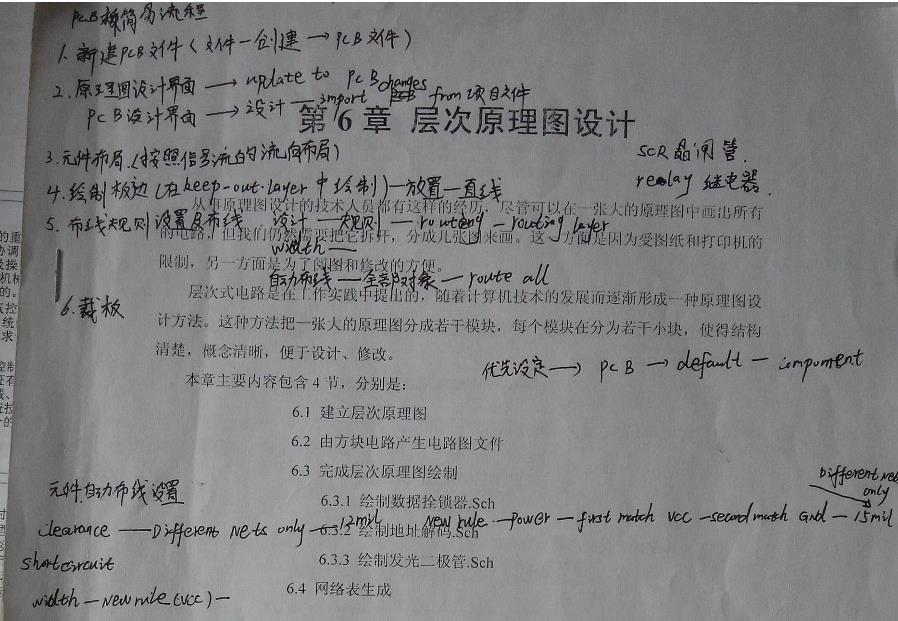 PCB板简易流程
1. 新建PCB文件(文件—创建→PCB文件)
2. 原理图设计界面→update to PCB changes
PCB设计界面→设计—import PCB from 项目文件
第 6 章 层次原理图设计
3. 元件布局.(按照信号流的流向布局)
SCR 晶闸管.
4. 绘制板边(在keep-out-layer中绘制)—放置—直线
relay 继电器.
从事原理图设计的技术人员都有这样的经历,尽管可以在一张大的原理图中画出所有
5. 布线规则设置及布线 设计—规则—routing—routing layer
的电路,但我们仍然需要把它拆开,分成几张图来画。这一方面是因为受图纸和打印机的
width—
限制,另一方面是为了阅图和修改的方便。
自动布线—全部对象—route all
层次式电路是在工作实践中提出的,随着计算机技术的发展而逐渐形成一种原理图设
6. 裁板
计方法。这种方法把一张大的原理图分成若干模块,每个模块在分为若干小块,使得结构
清楚,概念清晰,便于设计、修改。
优先设定→PCB→default—compument
本章主要内容包含 4 节,分别是:
6.1 建立层次原理图
6.2 由方块电路产生电路图文件
6.3 完成层次原理图绘制
元件自动布线设置
Different nets only
6.3.1 绘制数据拴锁器.Sch
clearance——Different Nets only—12mil New rule—Power—first match VCC—second math GND—15mil
6.3.2 绘制地址解码.Sch
shortcircuit
6.3.3 绘制发光二极管.Sch
6.4 网络表生成
width—New rule(VCC)—